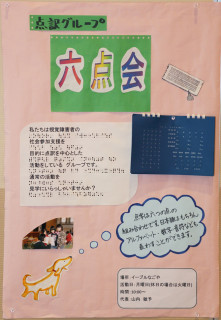 点訳グループ
六点会
私たちは視覚障害者の
社会参加支援を
目的に点訳を中心とした
活動をしている グループです。
通常の活動を
見学にいらっしゃいませんか?
点字は六つの点の
組み合わせでで、日本語はもちろん
アルファベット・数字・音符なども
表わすことができます。
場所:イーブルなごや
活動日:月曜(休日の場合は火曜日)
時間:10:00～
代表:山内